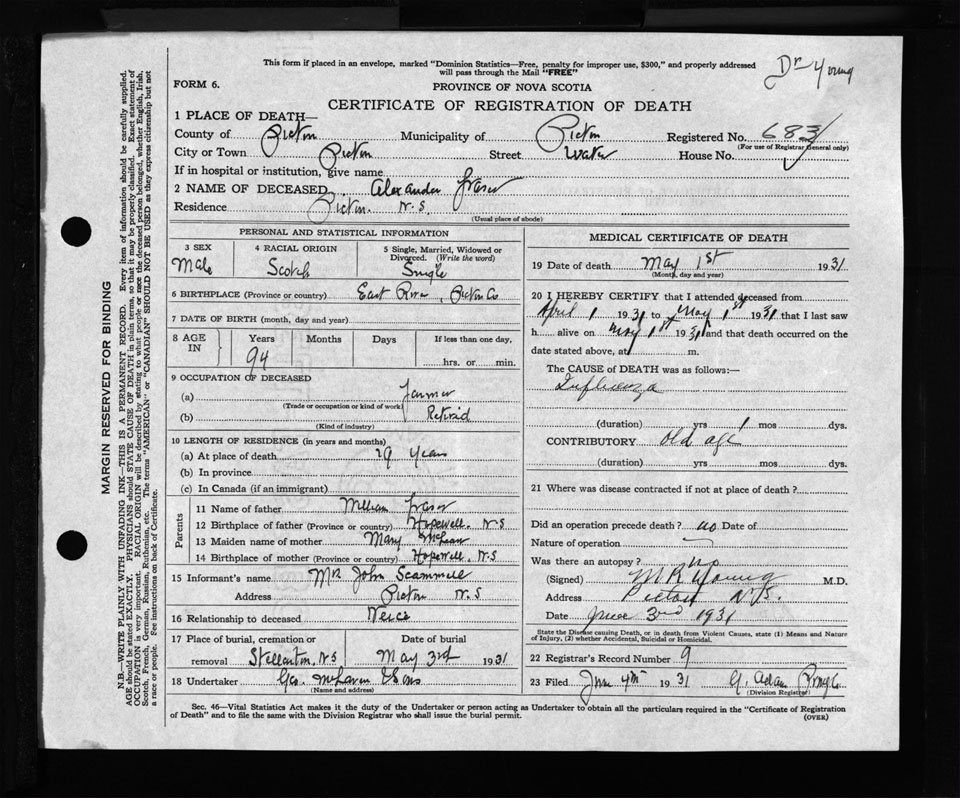 This form if placed in an envelope, marked "Dominion Statistics—Free, penalty for improper use, $300," and properly addressed
will pass through the Mail "FREE"
Dr Young
FORM 6.
PROVINCE OF NOVA SCOTIA
CERTIFICATE OF REGISTRATION OF DEATH
1 PLACE OF DEATH—
County of Pictou Municipality of Pictou Registered No. 683
(For use of Registrar General only)
City or Town Pictou Street Water House No.
If in hospital or institution, give name
2 NAME OF DECEASED Alexander Fraser
Residence Pictou. N.S.
(Usual place of abode)
PERSONAL AND STATISTICAL INFORMATION
3 SEX 4 RACIAL ORIGIN 5 Single, Married, Widowed or Divorced. (Write the word)
Male Scotch Single
6 BIRTHPLACE (Province or country) East River, Pictou Co
7 DATE OF BIRTH (month, day and year)
8 AGE IN Years Months Days If less than one day,
94 hrs. or min.
9 OCCUPATION OF DECEASED
(a) Farmer
(Trade or occupation or kind of work)
(b) Retired
(Kind of industry)
10 LENGTH OF RESIDENCE (in years and months)
(a) At place of death 29 years
(b) In province
(c) In Canada (if an immigrant)
Parents
11 Name of father William Fraser
12 Birthplace of father (Province or country) Hopewell. N.S
13 Maiden name of mother Mary McLean
14 Birthplace of mother (Province or country) Hopewell. N.S
15 Informant's name Mrs John Scammell
Address Pictou N.S
16 Relationship to deceased Neice
17 Place of burial, cremation or removal Stellarton, N.S Date of burial May 3rd 1931
18 Undertaker Geo. McLaren & Sons
(Name and address)
MEDICAL CERTIFICATE OF DEATH
19 Date of death May 1st 1931
(Month, day and year)
20 I HEREBY CERTIFY that I attended deceased from
April 1 1931 to May 1st 1931 that I last saw
h alive on May 1st 1931 and that death occurred on the
date stated above, at m.
The CAUSE of DEATH was as follows:
Influenza
(duration) yrs 1 mos dys.
CONTRIBUTORY Old age
(duration) yrs mos dys.
21 Where was disease contracted if not at place of death?
Did an operation precede death? no Date of
Nature of operation
Was there an autopsy? no
(Signed) M R Young M.D.
Address Pictou N.S.
Date June 3rd 1931
State the Disease causing Death, or in death from Violent Causes, state (1) Means and Nature
of Injury, (2) whether Accidental, Suicidal or Homicidal.
22 Registrar's Record Number 9
23 Filed June 4th 1931 G. Adam
(Division Registrar)
Sec. 46—Vital Statistics Act makes it the duty of the Undertaker or person acting as Undertaker to obtain all the particulars required in the "Certificate of Registration
of Death" and to file the same with the Division Registrar who shall issue the burial permit.
(OVER)
MARGIN RESERVED FOR BINDING
N.B.—WRITE PLAINLY WITH UNFADING INK—THIS IS A PERMANENT RECORD. Every item of information should be carefully supplied.
AGE should be stated EXACTLY. PHYSICIANS should STATE CAUSE OF DEATH in plain terms, so that it may be properly classified. Exact statement of
OCCUPATION is very important. RACIAL ORIGIN will be described by stating to what people or race the deceased person belonged, whether English, Irish,
Scotch, French, German, Russian, Ruthenian, etc. The terms "AMERICAN" or "CANADIAN" SHOULD NOT BE USED as they express citizenship but not
a race or people. See instructions on back of Certificate.